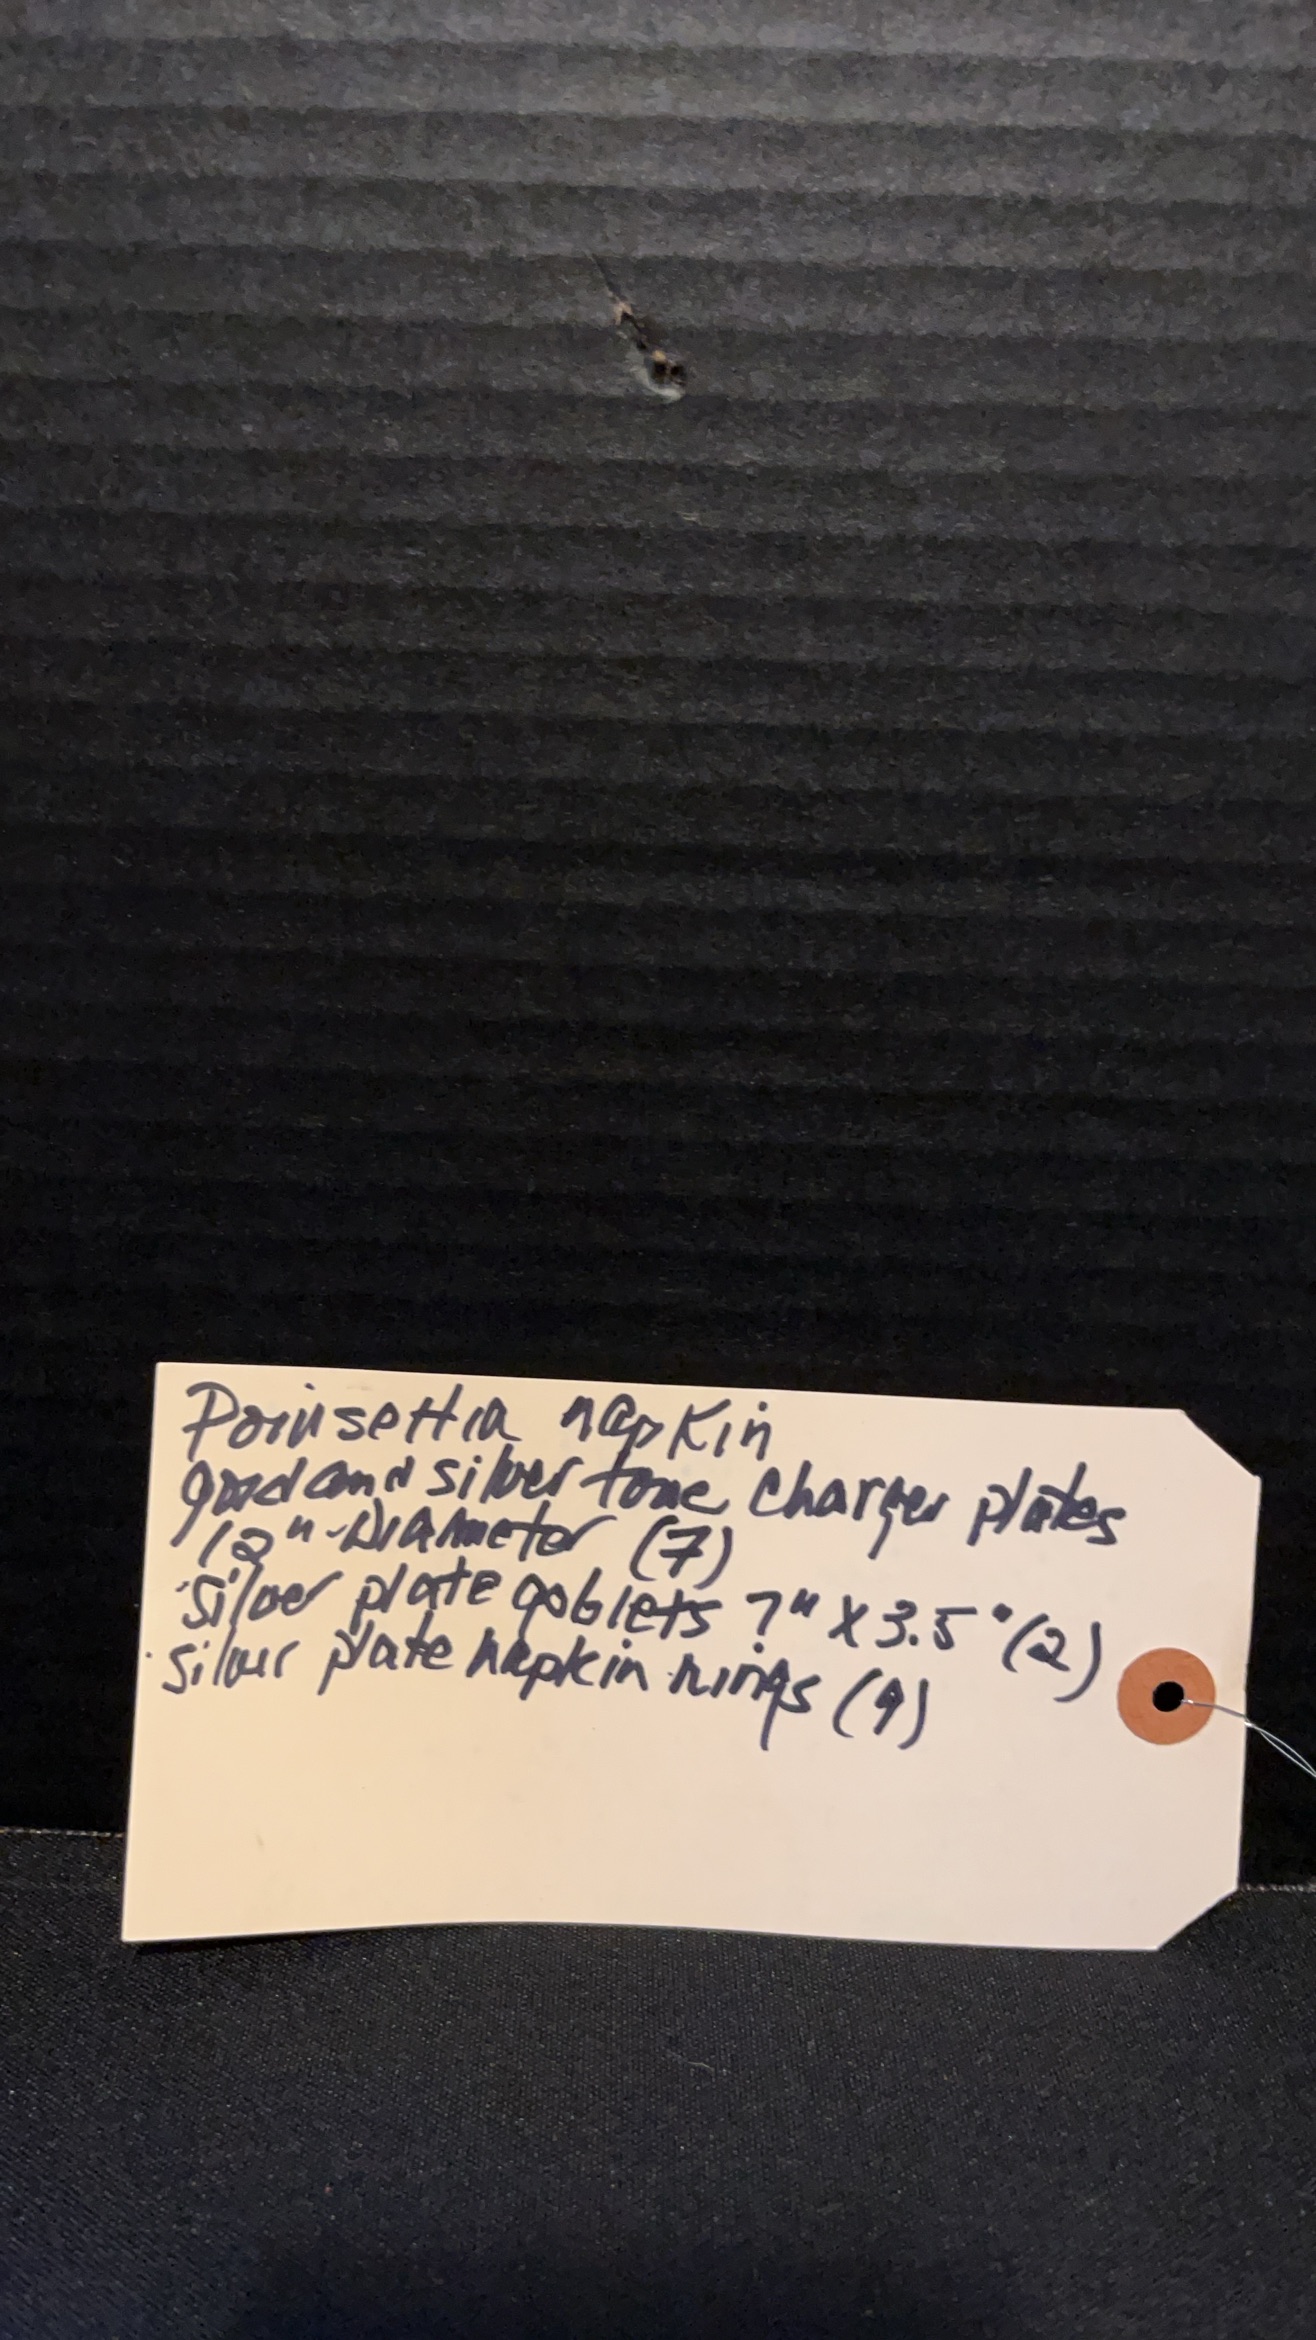 Poinsettia napkin
gold and silver tone charger plates
12" Diameter (7)
silver plate goblets 7" X 3.5" (2)
silver plate napkin rings (9)